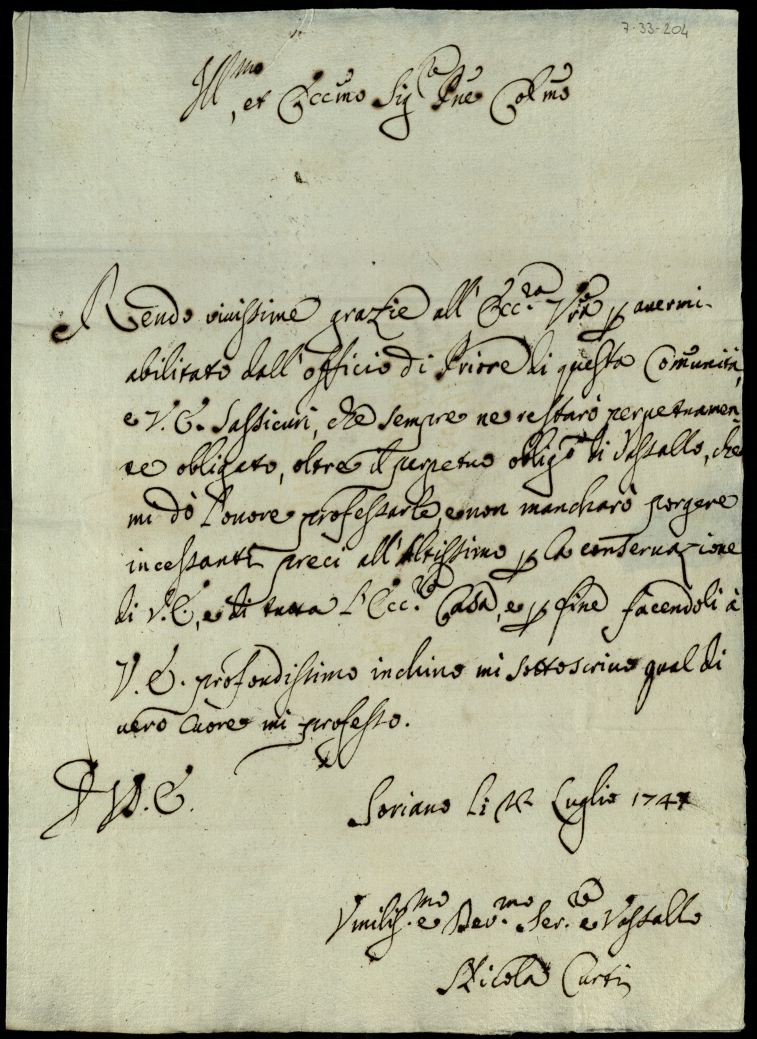 7-33-204
Ill.mo, et Ecc.mo Sig.re Pne Col.mo
Rendo vivissime grazie all' Ecc.za Vra p avermi
abilitato dall' officio di Priore di questa Comunità,
e V. E. s'assicuri, che sempre ne restarò perpetuamen-
te obligato, oltre il perpetuo oblig.o di Vassallo, che
mi dò l'onore professarle, e non mancharò porgere
incessanti preci all' Altissimo p la conservazione
di V. E., e di tutta l' Ecc.ma Casa, e p fine facendoli à
V. E. profondissimo inchino mi sottoscrivo qual di
vero Cuore mi professo.
D V. E.
Soriano li Luglio 1747
Vmilis.mo e Dev.mo Ser.re e Vassallo
Nicola Curti